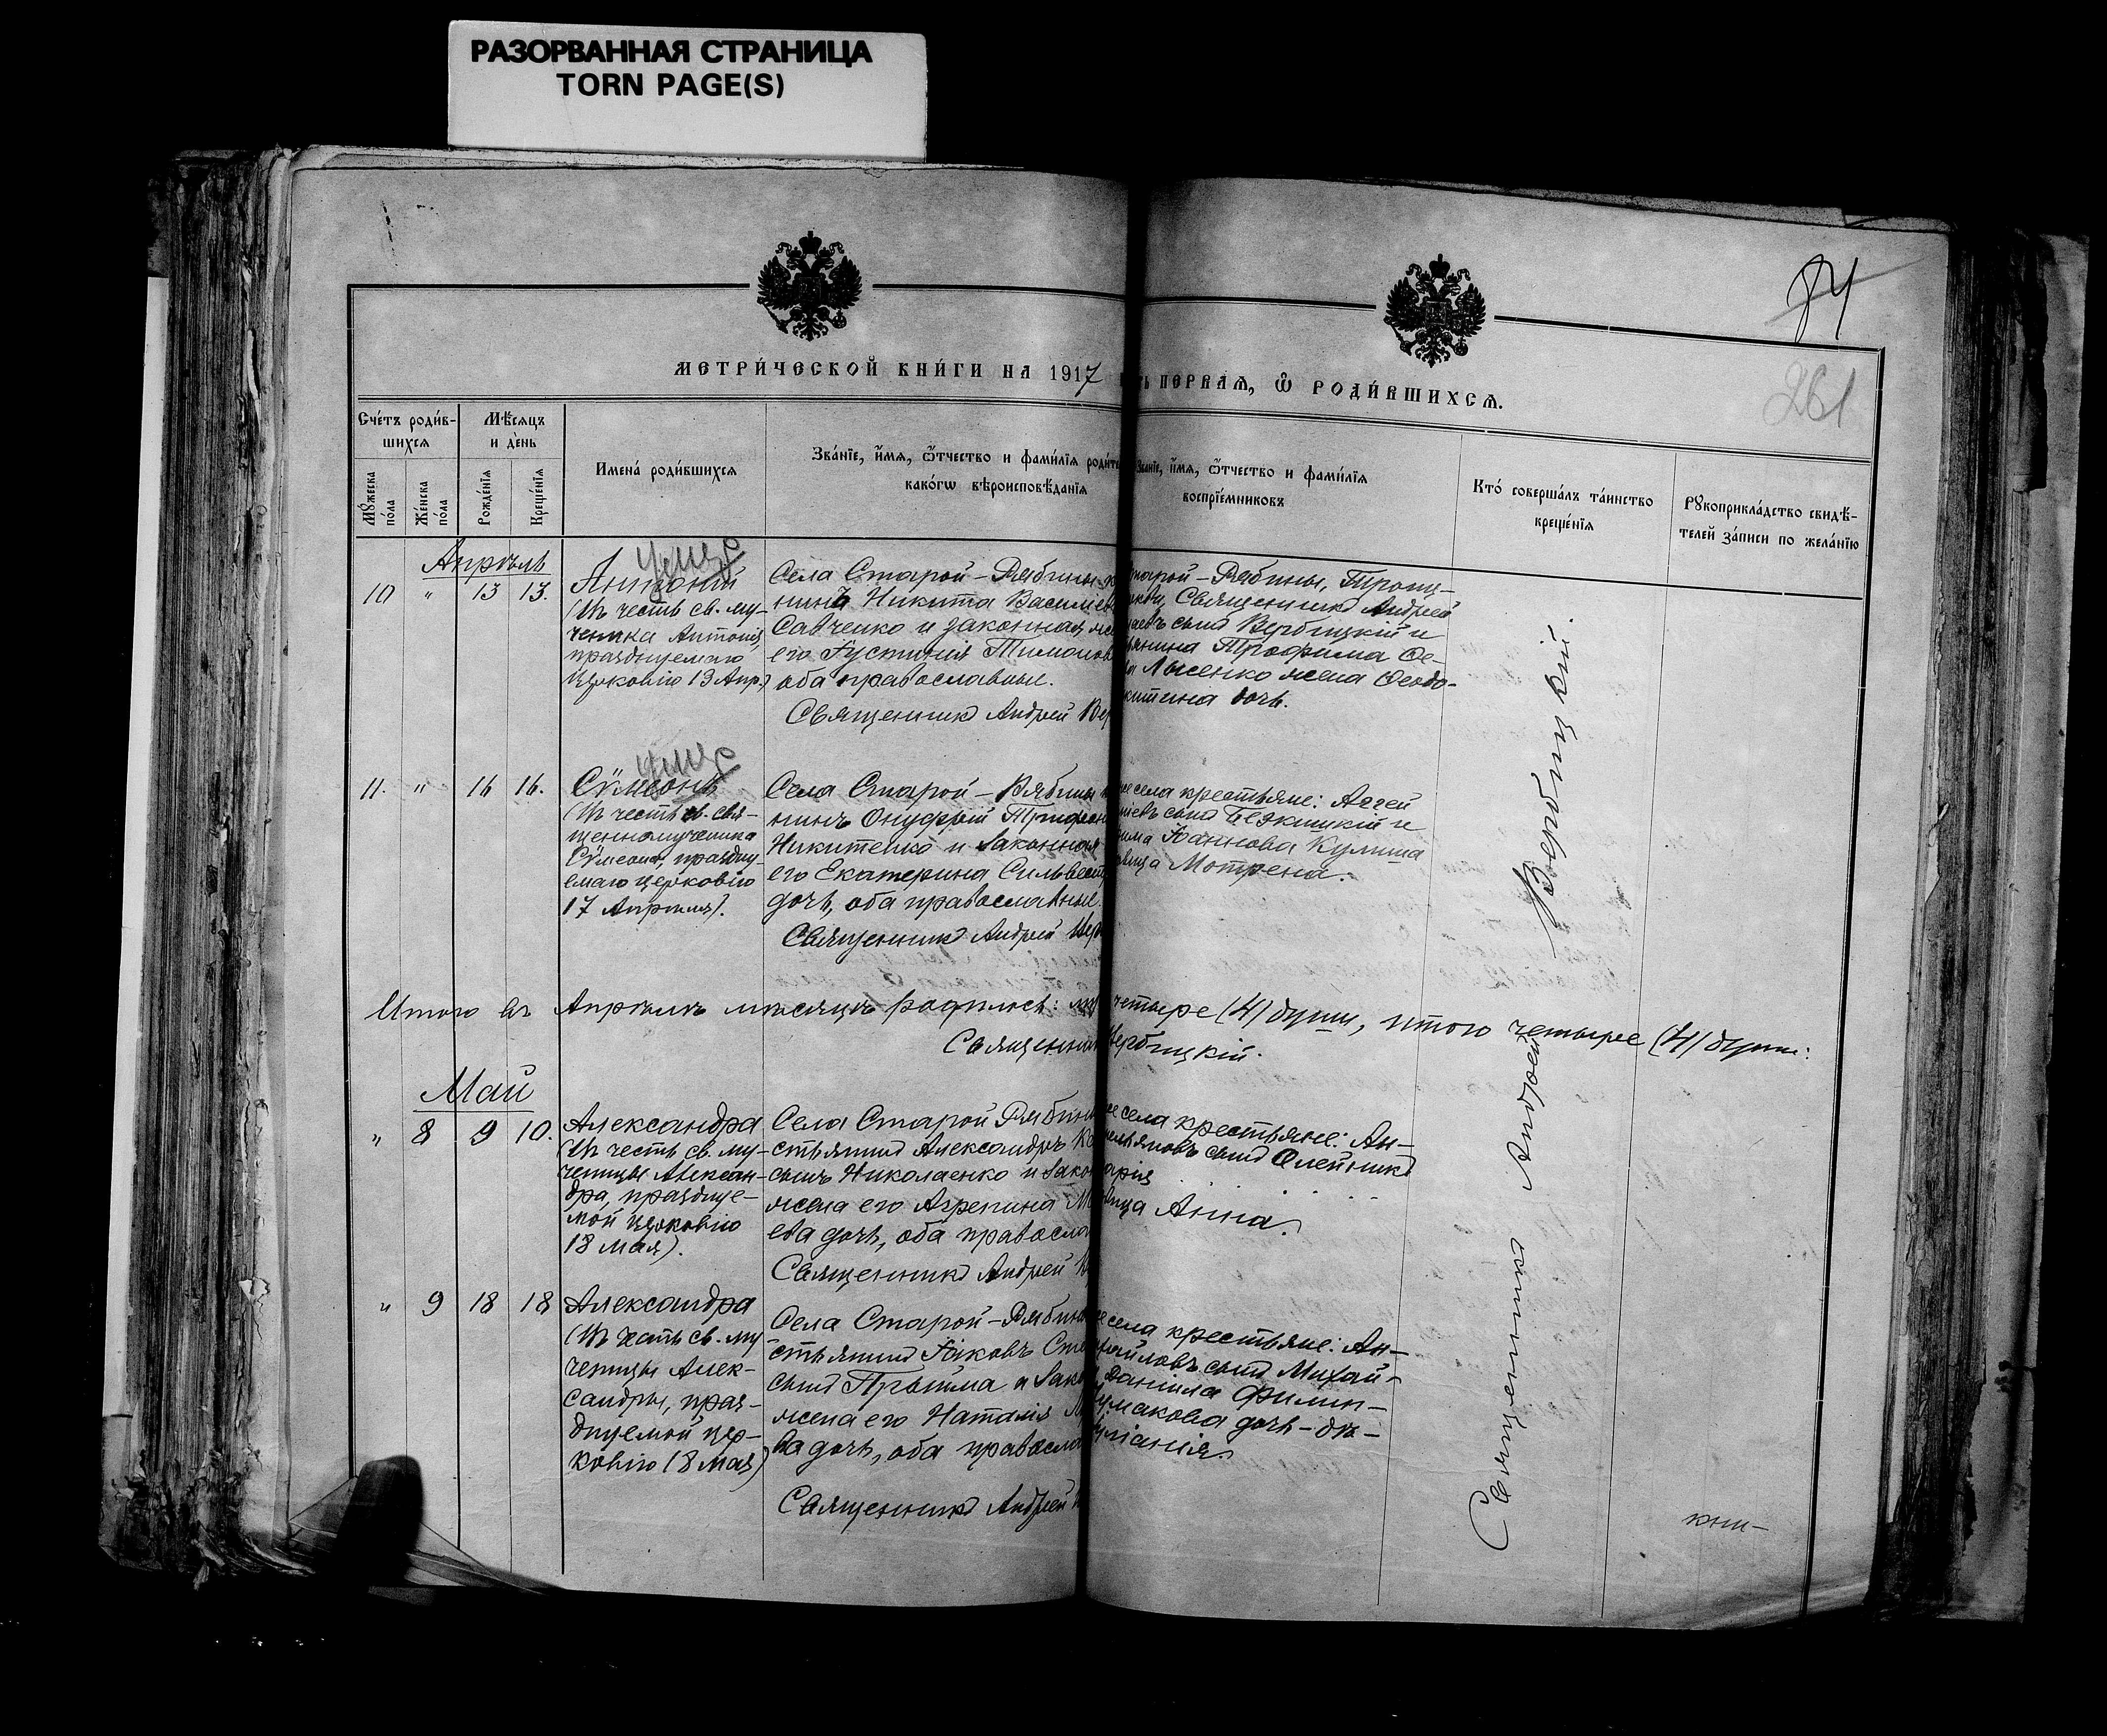 РАЗОРВАННАЯ СТРАНИЦА
TORN PAGE(S)
84
261
МЕТРИ́ЧЕСКОЙ КНИ́ГИ НА 1917
ть ПЕРВАѦ, Ѽ РОДИ́ВШИХСѦ.
Сче́тъ роди́в-
шихсѧ
Мѣ́сѧцъ
и де́нь
Мꙋ́жеска по́ла
Же́нска по́ла
Рожде́нїѧ
Креще́нїѧ
Имена́ роди́вшихсѧ
Зва́нїе, и҆́мѧ, ѻ҆́тчество и фами́лїѧ роди́те
како́гѡ вѣроисповѣ́данїѧ
Зва́нїе, и҆́мѧ, ѻ҆́тчество и фами́лїѧ
воспрїе́мниковъ
Кто́ соверша́лъ та́инство
креще́нїѧ
Рꙋкоприкла́дство свидѣ́-
телей за́писи по жела́нїю
Апрѣль
10 " 13 13.
Антоній
(Въ честь св. му-
ченика Антонія,
празднуемаго
церковію 13 Апр.)
Села Старой-Рябины
нинъ Никита Василіев
Савченко и законная же
его Іустинія Тимоѳов
оба православные.
Священникъ Андрей Вер
тарой-Рябины, Троиц-
ркви, Священникъ Андрей
аевъ сынъ Вербицкій и
янина Трофима Ѳе-
ва Лысенко жена Ѳеодо-
китина дочь.
11. " 16 16.
Сѵмеонъ
(Въ честь св. свя-
щенномученика
Сѵмеона, праздну-
емаго церковію
17 Апрѣля).
Села Старой-Рябины
нинъ Онуфрій Трифон
Никитенко и законная
его Екатерина Сильвест
дочь, оба православные.
Священникъ Андрей Вер
же села крестьяне: Аггей
сынъ и
Іоаннова Кулиша
вица Мотрена.
Итого въ Апрѣлѣ мѣсяцѣ родилось: му
четыре (4) души, итого четыре (4) души:
Священник
Вербицкій.
Май
" 8 9 10.
Александра
(Въ честь св. му-
ченицы Алексан-
дра, празднуе-
мой церковію
18 мая).
Села Старой Рябин
стьянинъ Александръ Ко
сынъ Николаенко и зако
жена его Агрепина М
ева дочь, оба правосла
Священникъ Андрей В
же села крестьяне: Ан-
ельяновъ сынъ Олейникъ
арія
вица Анна.
" 9 18 18
Александра
(Въ честь св. му-
ченицы Алек-
сандры, праз-
днуемой цер-
ковію 18 мая)
Села Старой-Рябин
стьянинъ Іаковъ Сте
сынъ Прыйма и зако
жена его Наталія
ва дочь, оба правосла
Священникъ Андрей В
же села крестьяне: Ан-
хайловъ сынъ Михай-
Даніила Филип-
макова дочь-дѣ-
Священникъ Андрей Вербицкій.